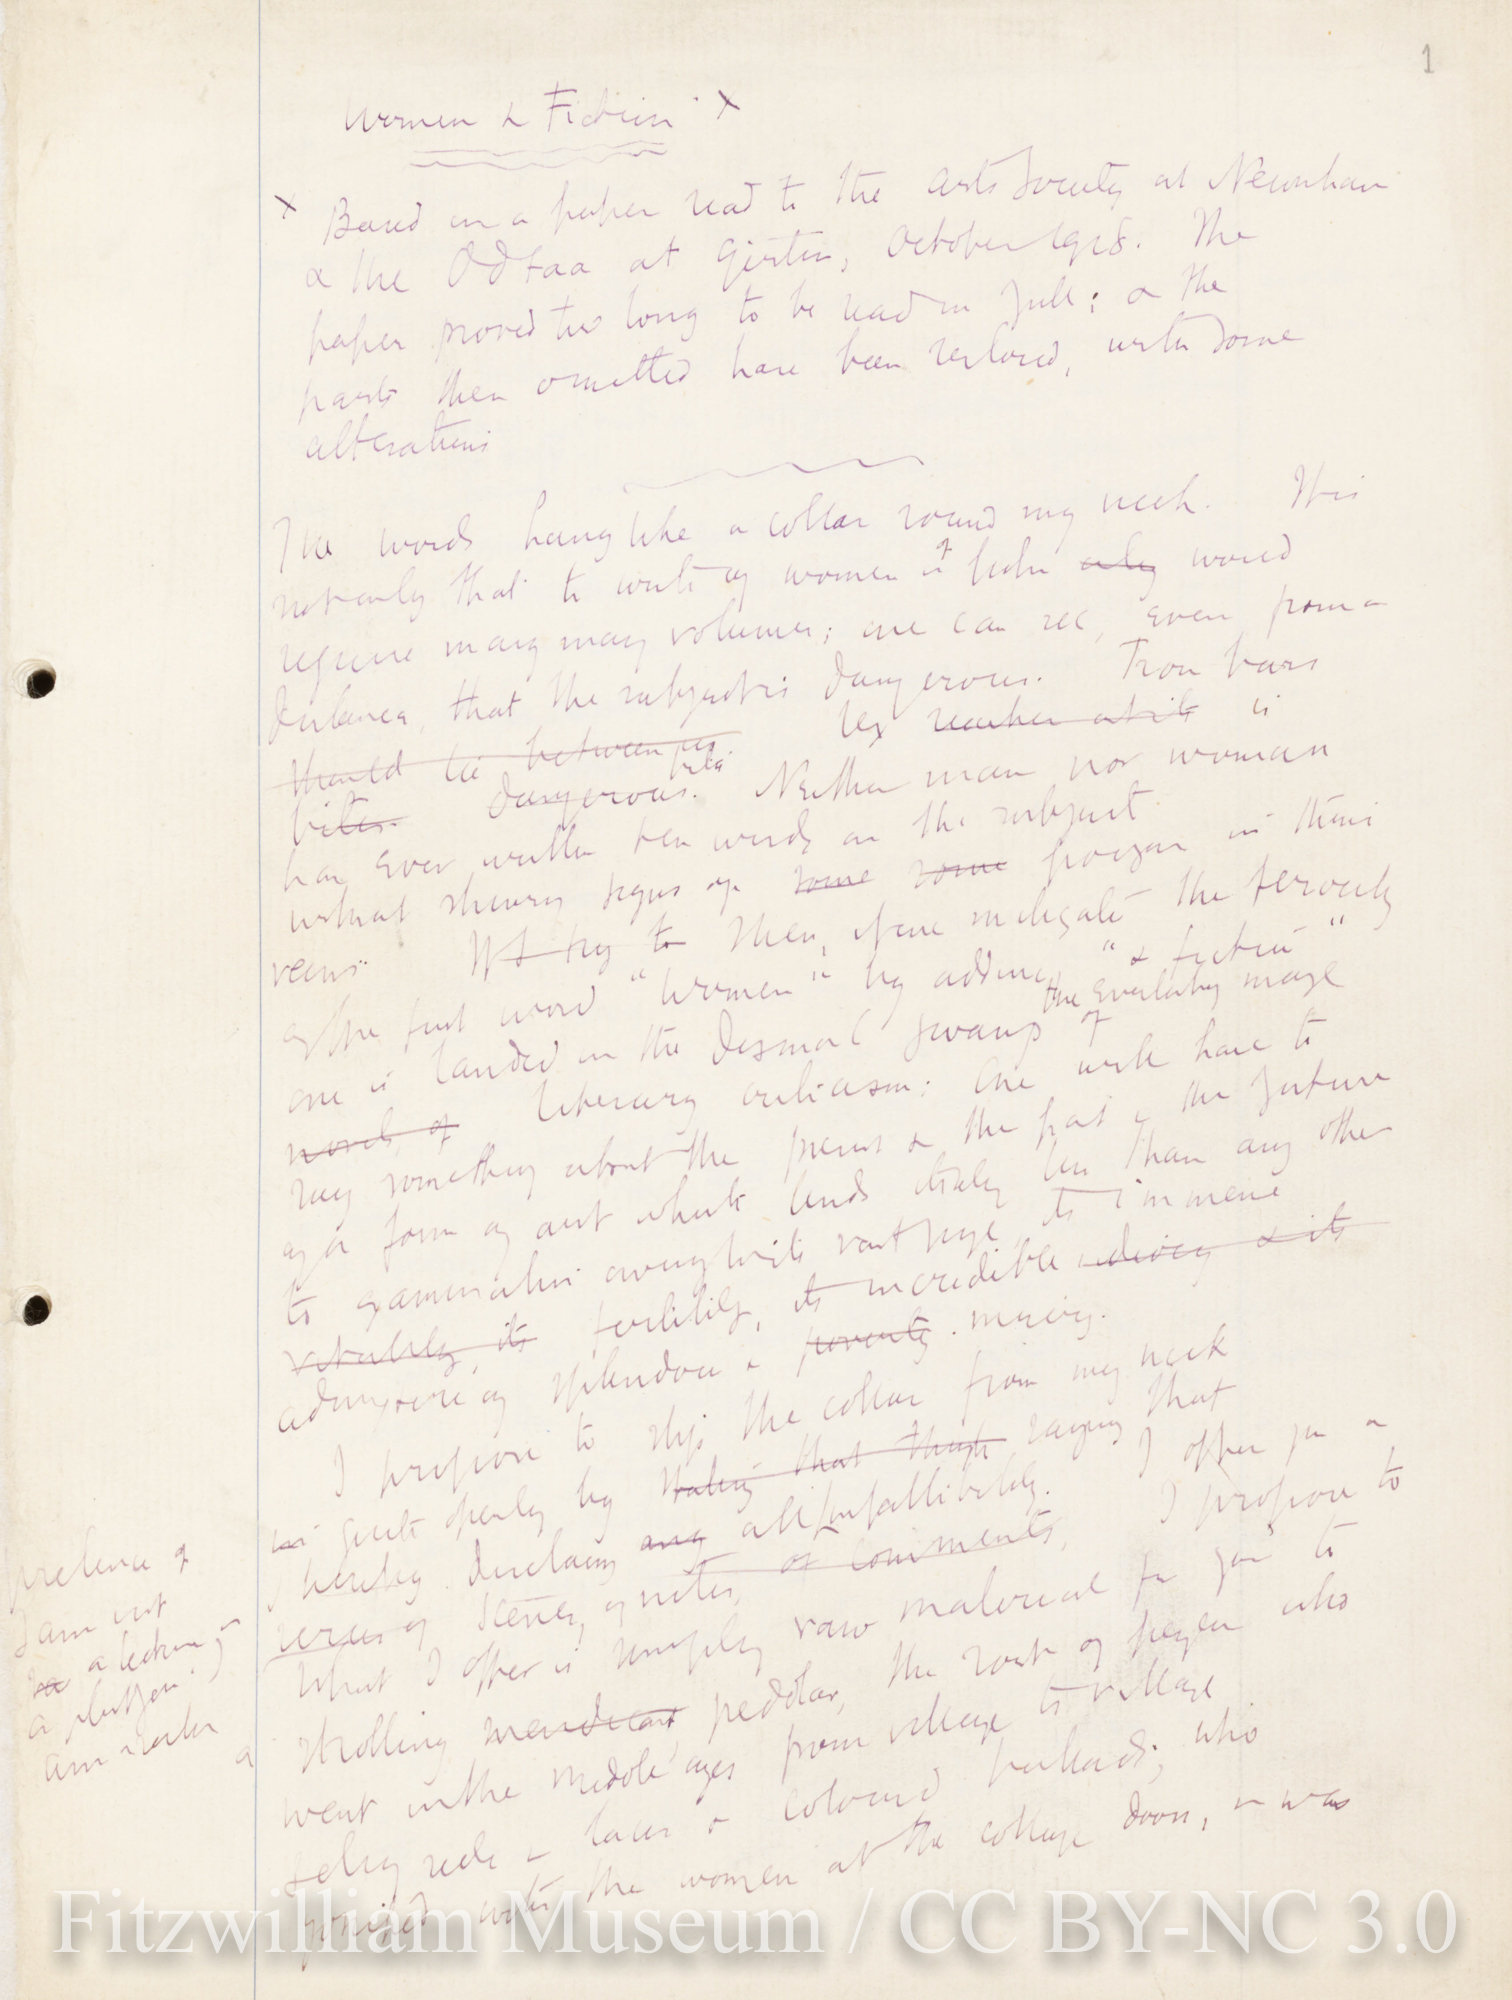 1
Women & Fiction x
x Based on a paper read to the Arts Society at Newnham
& the Odtaa at Girton, October 1928. The
paper proved too long to be read in full; & the
parts then omitted have been restored, with some
alterations
The words hang like a collar round my neck. It is
not only that to write of women & fiction only would
require many many volumes; one can see, even from a
distance, that the subject is dangerous. Iron bars
should lie between us. Sex is
bites. dangerous. Neither man nor woman
has ever written ten words on the subject
without showing signs of some some poison in their
veins. We try to Then, if one mitigates the ferocity
of the first word "women" by adding "& fiction"
one is landed in the dismal swamp of the everlasting maze
novels of literary criticism: One will have to
say something about the present & the past & the future
of a form of art which lends itself less than any other
to examination owing to its vast size, its immense
vitality, its fertility, its incredible & its
of splendour & poverty. misery.
I propose to slip the collar from my neck
quite openly by stating that though saying that
I hereby disclaim any all infallibility. I offer you a
series of scenes, of notes, or comments, I propose to
What I offer is simply raw material for you to
strolling mendicant, pedlar, the sort of person who
went in the middle ages from village to village
selling reels & laces & coloured ballads; who
gossiped with the women at the cottage door, & was
pretence of
I am not
a lecturer
a platform
am rather
a
Fitzwilliam Museum / CC BY-NC 3.0